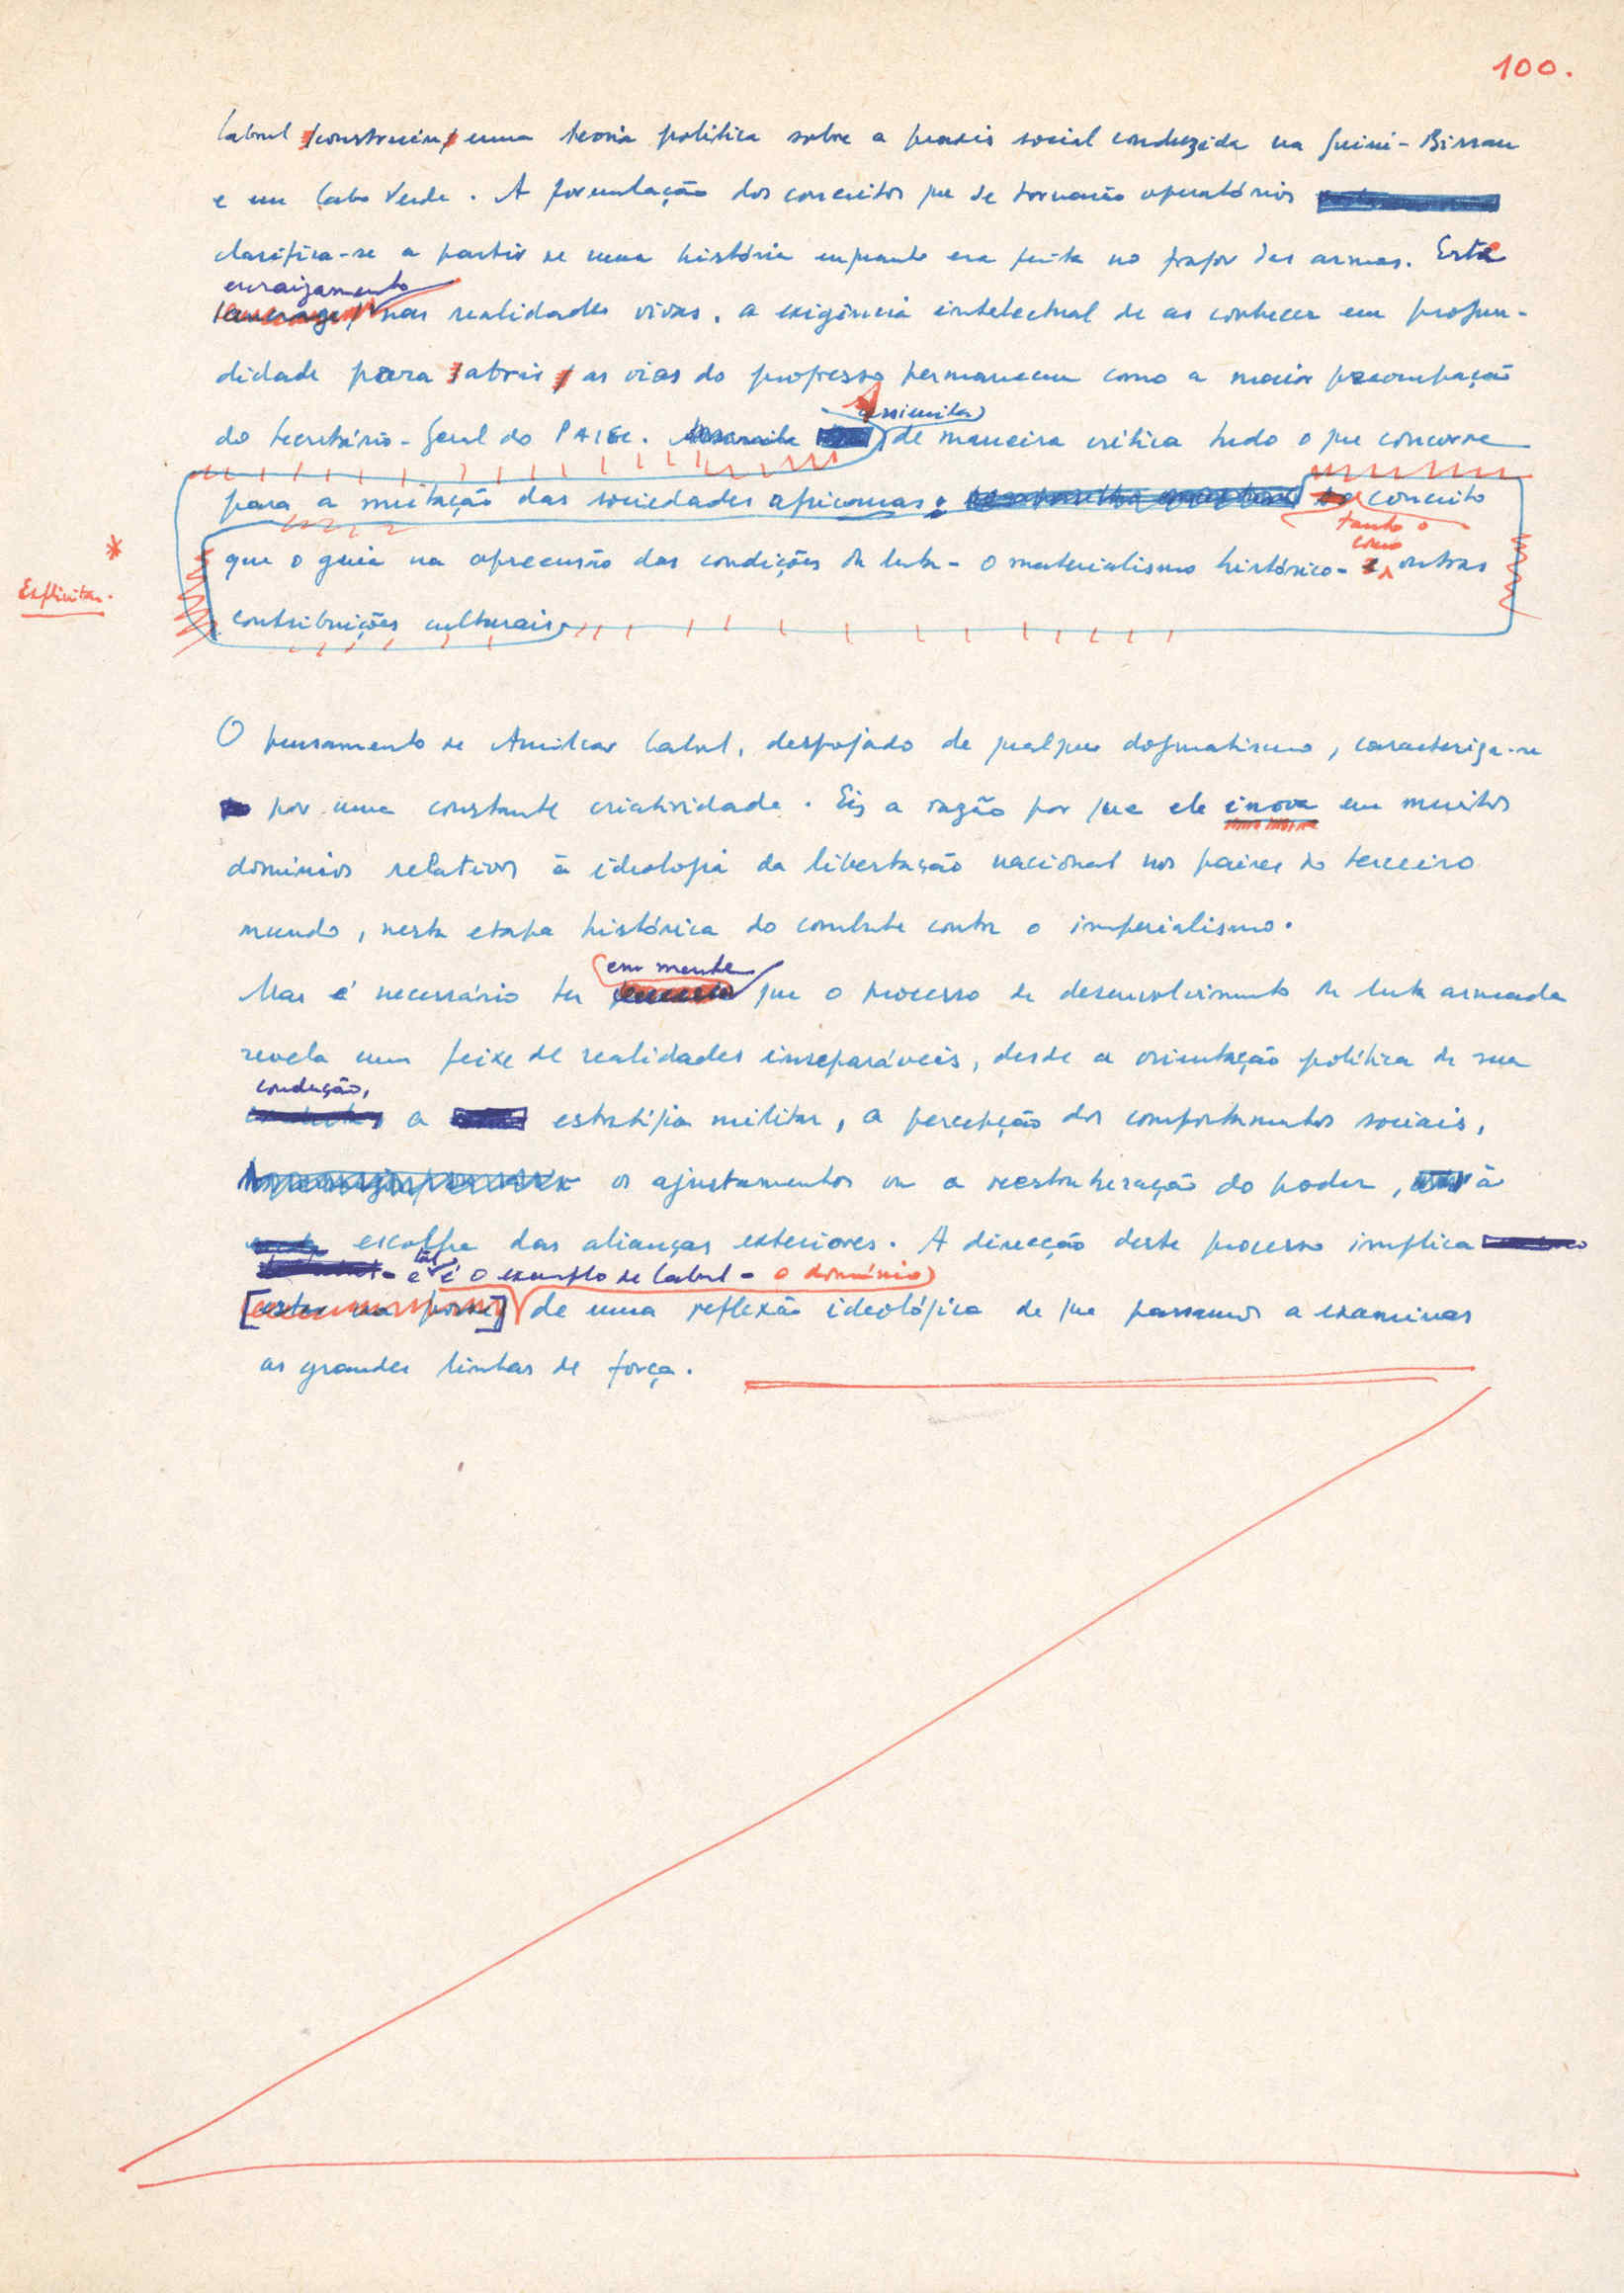 100.
Cabral /construiu/ uma teoria política sobre a praxis social conduzida na Guiné-Bissau
e em Cabo Verde. A formulação dos conceitos que se tornarão operatórios
clarifica-se a partir de uma história enquanto era feita no fragor das armas. Este
enraizamento
nas realidades vivas, a exigência intelectual de as conhecer em profun-
didade para /abrir/ as vias do progresso permanecem como a maior preocupação
assimilar
do Secretário-Geral do PAIGC. de maneira crítica tudo o que concorre
para a mutação das sociedades africanas: conceito
tanto o
como
que o guia na apreensão das condições da luta - o materialismo histórico - outras
Explicitar.
contribuições culturais.
O pensamento de Amilcar Cabral, despojado de qualquer dogmatismo, caracteriza-se
por uma constante criatividade. Eis a razão por que ele inova em muitos
domínios relativos à ideologia da libertação nacional nos países do terceiro
mundo, nesta etapa histórica do combate contra o imperialismo.
em mente
Mas é necessário ter que o processo de desenvolvimento da luta armada
revela um feixe de realidades inseparáveis, desde a orientação política da sua
condução,
a estratégia militar, a percepção dos comportamentos sociais,
os ajustamentos ou a reestruturação do poder, à
escolha das alianças exteriores. A direcção deste processo implica
- e tal é o exemplo de Cabral - o domínio
[estar na posse] de uma reflexão ideológica de que passamos a examinar
as grandes linhas de força.